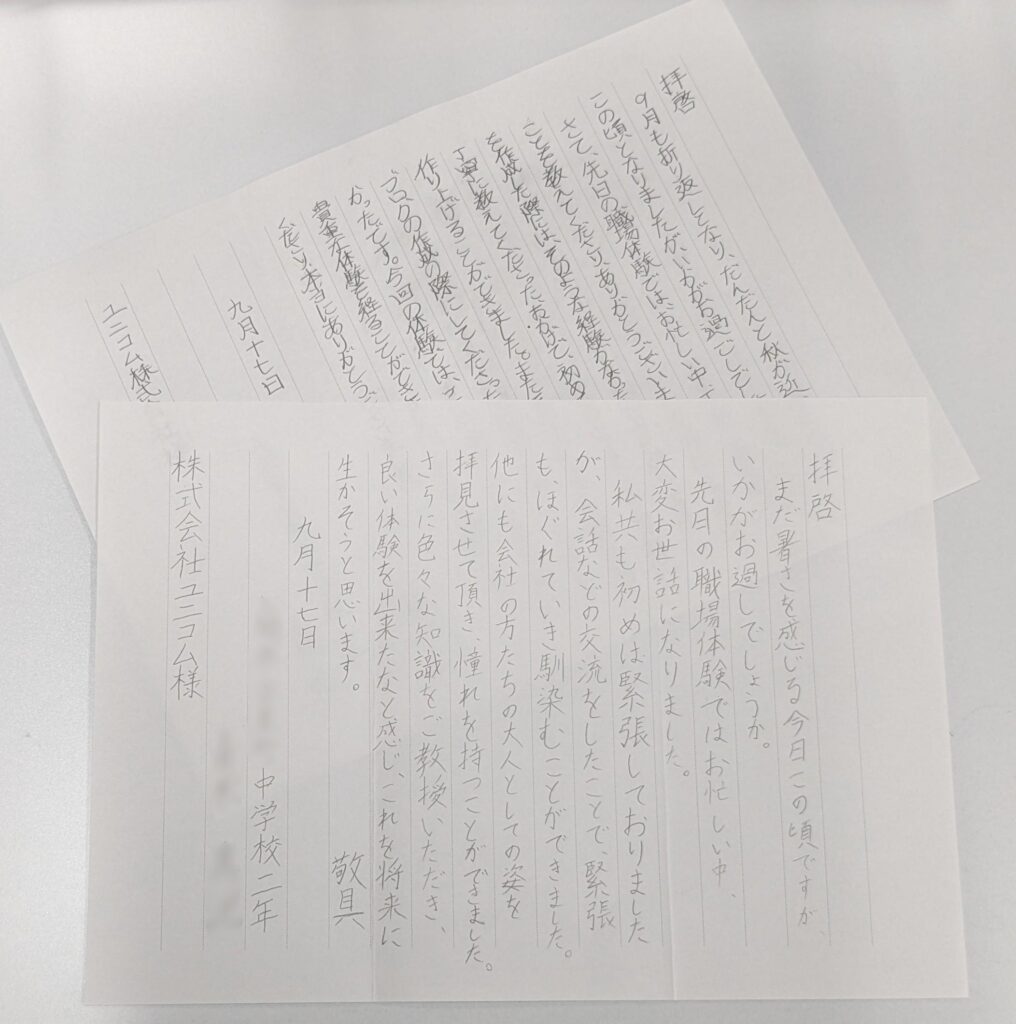 拝啓
まだ暑さを感じる今日この頃ですが、
いかがお過しでしょうか。
先月の職場体験ではお忙しい中、
大変お世話になりました。
私共も初めは緊張しておりました
が、会話などの交流をしたことで、緊張
も、ほぐれていき馴染むことができました。
他にも会社の方たちの大人としての姿を
拝見させて頂き、憧れを持つことができました。
さらに色々な知識をご教授いただき、
良い体験を出来たなと感じ、これを将来に
生かそうと思います。
敬具
九月十七日
中学校二年
株式会社ユニコム様
拝啓
9月も折り返しとなり、だんだんと秋が近
この頃となりましたが、いかがお過ごしでし
さて、先日の職場体験ではお忙しい中、
ことを教えてくださり、ありがとうございま
を作成した際には、そのような経験がなかっ
丁寧に教えてくださったおかげで、初め
作り上げることができました。また
ブログの作成の際にしてくださった
かったです。今回の体験では、
貴重な体験を経ることができ
ください、本当にありがとう
九月十七日
ユニコム株式